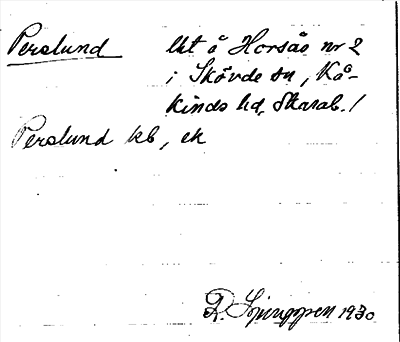 Perslund lht å Horsås nr 2
i Skövde sn, Kå-
kinds hd, Skarab. l
Perslund kb, ek
R. Ljunggren 1930